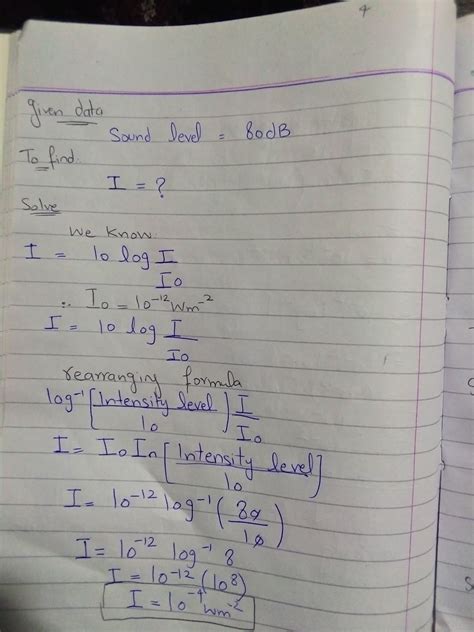 4
given data
Sound level = 80dB
To find.
I = ?
Solve
We know
I = 10 log I/I0
∴ I0 = 10^-12 Wm^-2
I = 10 log I/I0
rearranging formula
log^-1 [Intensity level/10] I/I0
I = I0 In [Intensity level/10]
I = 10^-12 log^-1 (80/10)
I = 10^-12 log^-1 8
I = 10^-12 (10^8)
I = 10^-4 Wm^-2